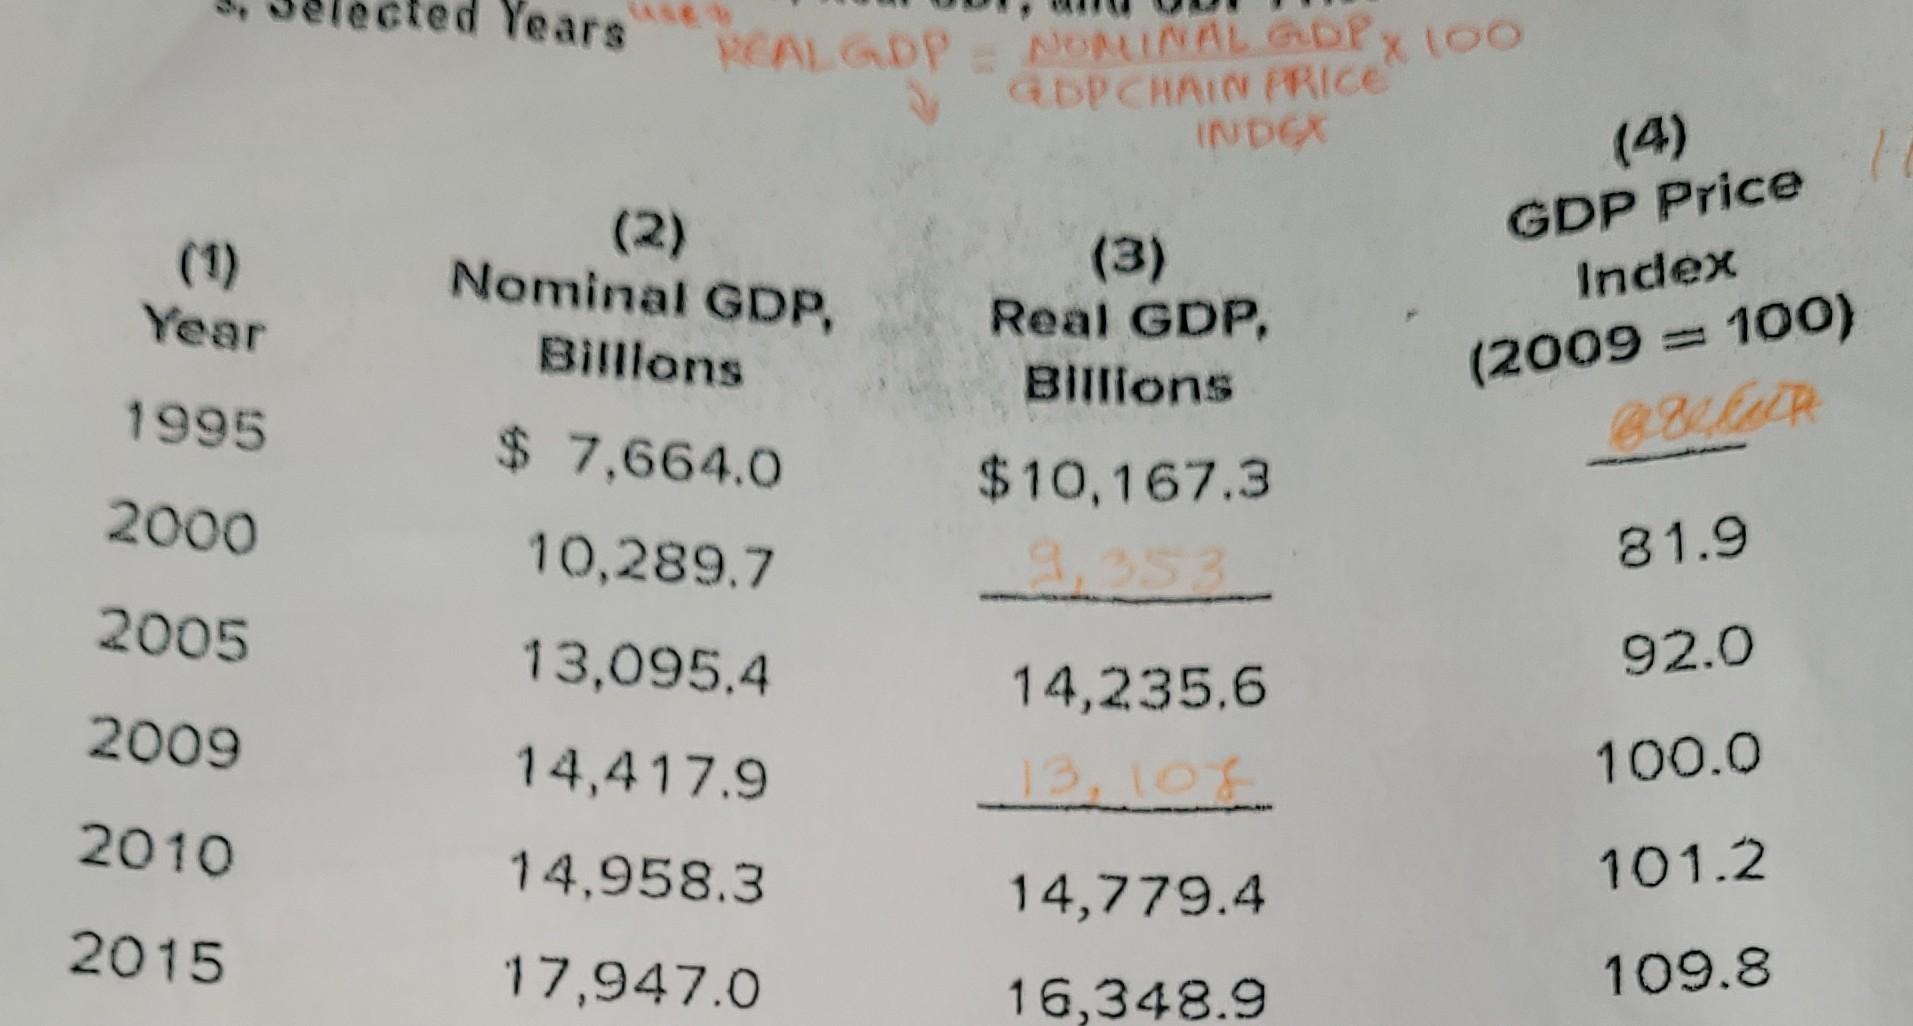 s, Selected Years
REAL GDP = NOMINAL GDP x 100
GDP CHAIN PRICE
INDEX
(1)
Year
(2)
Nominal GDP,
Billions
(3)
Real GDP,
Billions
(4)
GDP Price
Index
(2009 = 100)
1995 $ 7,664.0 $10,167.3
2000 10,289.7 9,353 81.9
2005 13,095.4 14,235.6 92.0
2009 14,417.9 13,108 100.0
2010 14,958.3 14,779.4 101.2
2015 17,947.0 16,348.9 109.8